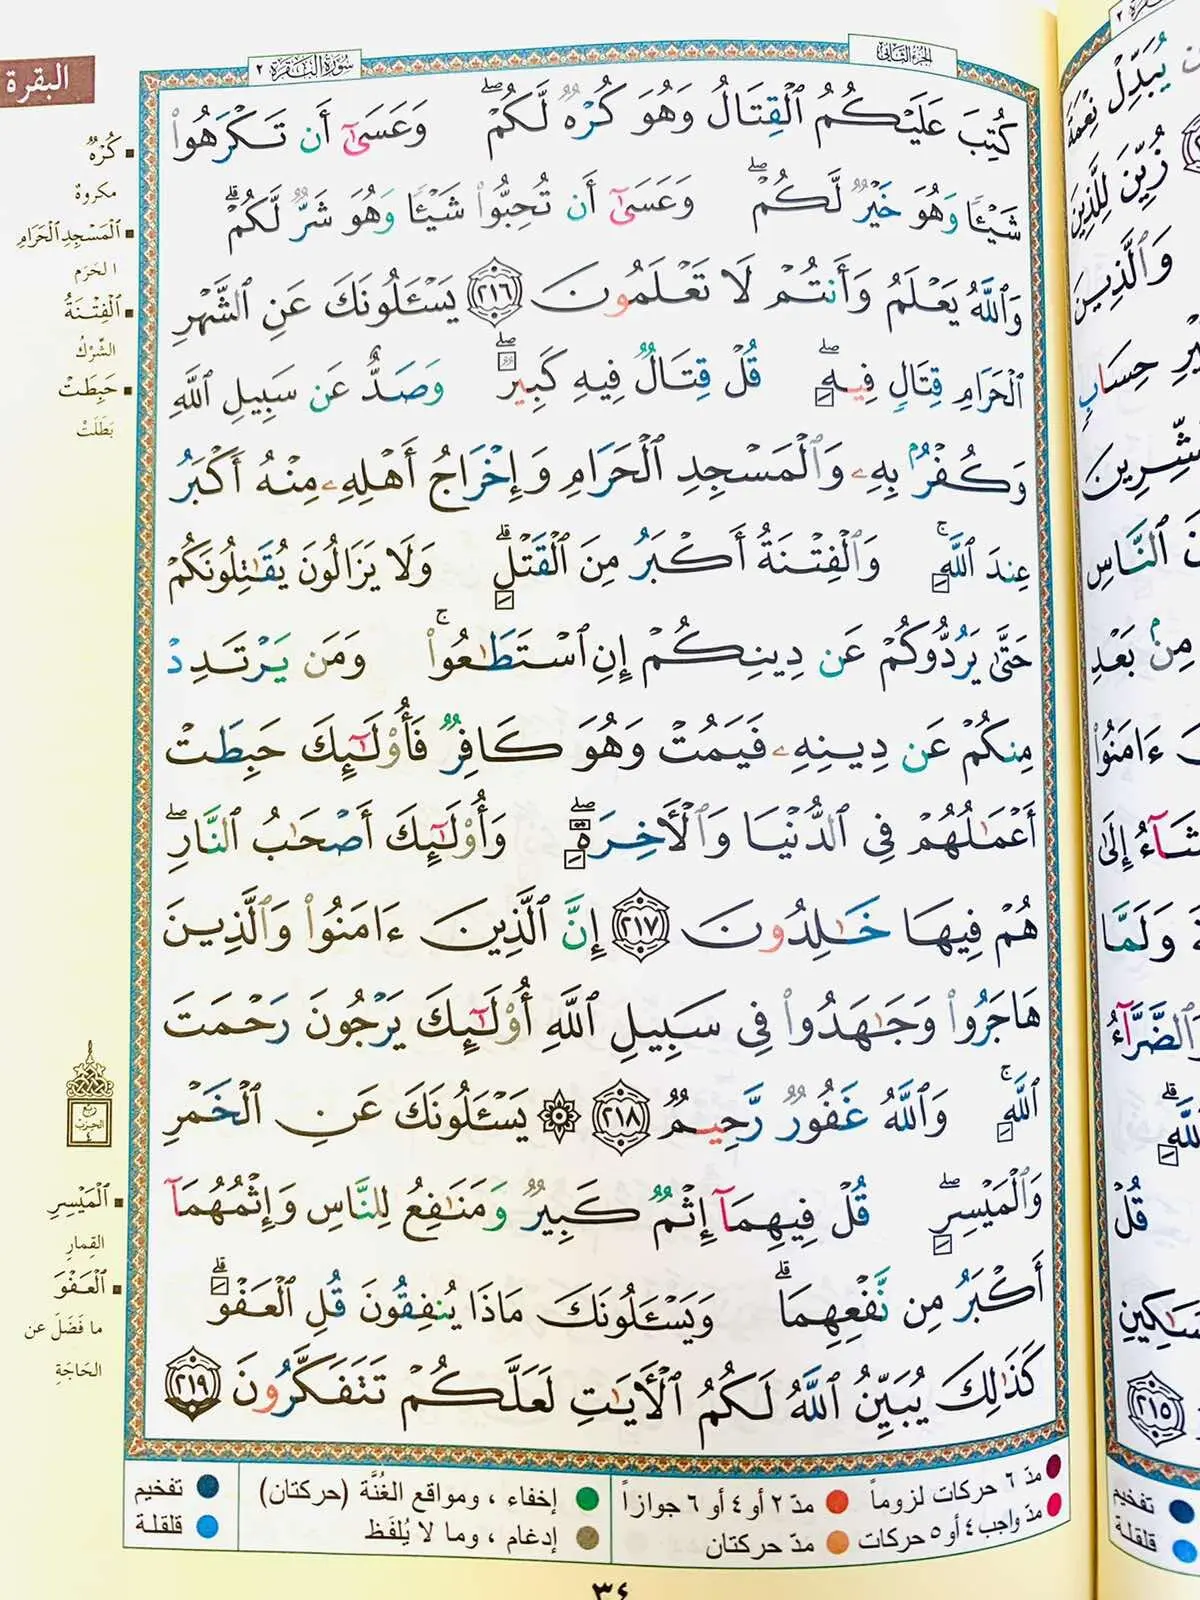 البقرة
سورة البقرة ٢
الجزء الثاني
كُتِبَ عَلَيْكُمُ ٱلْقِتَالُ وَهُوَ كُرْهٌ لَّكُمْ ۖ وَعَسَىٰٓ أَن تَكْرَهُوا۟
شَيْـًٔا وَهُوَ خَيْرٌ لَّكُمْ ۖ وَعَسَىٰٓ أَن تُحِبُّوا۟ شَيْـًٔا وَهُوَ شَرٌّ لَّكُمْ ۗ
وَٱللَّهُ يَعْلَمُ وَأَنتُمْ لَا تَعْلَمُونَ ٢١٦ يَسْـَٔلُونَكَ عَنِ ٱلشَّهْرِ
ٱلْحَرَامِ قِتَالٍ فِيهِ ۖ قُلْ قِتَالٌ فِيهِ كَبِيرٌ ۖ وَصَدٌّ عَن سَبِيلِ ٱللَّهِ
وَكُفْرٌۢ بِهِۦ وَٱلْمَسْجِدِ ٱلْحَرَامِ وَإِخْرَاجُ أَهْلِهِۦ مِنْهُ أَكْبَرُ
عِندَ ٱللَّهِ ۚ وَٱلْفِتْنَةُ أَكْبَرُ مِنَ ٱلْقَتْلِ ۗ وَلَا يَزَالُونَ يُقَـٰتِلُونَكُمْ
حَتَّىٰ يَرُدُّوكُمْ عَن دِينِكُمْ إِنِ ٱسْتَطَـٰعُوا۟ ۚ وَمَن يَرْتَدِدْ
مِنكُمْ عَن دِينِهِۦ فَيَمُتْ وَهُوَ كَافِرٌ فَأُو۟لَـٰٓئِكَ حَبِطَتْ
أَعْمَـٰلُهُمْ فِى ٱلدُّنْيَا وَٱلْـَٔاخِرَةِ ۖ وَأُو۟لَـٰٓئِكَ أَصْحَـٰبُ ٱلنَّارِ ۖ
هُمْ فِيهَا خَـٰلِدُونَ ٢١٧ إِنَّ ٱلَّذِينَ ءَامَنُوا۟ وَٱلَّذِينَ
هَاجَرُوا۟ وَجَـٰهَدُوا۟ فِى سَبِيلِ ٱللَّهِ أُو۟لَـٰٓئِكَ يَرْجُونَ رَحْمَتَ
ٱللَّهِ ۚ وَٱللَّهُ غَفُورٌ رَّحِيمٌ ٢١٨ ۞ يَسْـَٔلُونَكَ عَنِ ٱلْخَمْرِ
وَٱلْمَيْسِرِ ۖ قُلْ فِيهِمَآ إِثْمٌ كَبِيرٌ وَمَنَـٰفِعُ لِلنَّاسِ وَإِثْمُهُمَآ
أَكْبَرُ مِن نَّفْعِهِمَا ۗ وَيَسْـَٔلُونَكَ مَاذَا يُنفِقُونَ قُلِ ٱلْعَفْوَ ۗ
كَذَٰلِكَ يُبَيِّنُ ٱللَّهُ لَكُمُ ٱلْـَٔايَـٰتِ لَعَلَّكُمْ تَتَفَكَّرُونَ ٢١٩
كُرْهٌ
مكروهٌ
ٱلْمَسْجِدِ ٱلْحَرَامِ
الحَرَم
ٱلْفِتْنَةُ
الشِّرْكُ
حَبِطَتْ
بَطَلَتْ
ربع
الحزب
٤
ٱلْمَيْسِرِ
القِمارِ
ٱلْعَفْوَ
ما فَضَلَ عن
الحَاجَةِ
مدّ ٦ حركات لزوماً
مدّ ٢ أو ٤ أو ٦ جوازاً
إخفاء ، ومواقع الغُنَّة (حركتان)
تفخيم
مدّ واجب ٤ أو ٥ حركات
مدّ حركتان
إدغام ، وما لا يُلفَظ
قلقلة
٣٤
يُبَدِّلْ نِعْمَةَ
زُيِّنَ لِلَّذِينَ
وَٱلَّذِينَ
حِسَابٍ
ٱلنَّاسِ
مِنۢ بَعْدِ
ءَامَنُوا۟
إِلَىٰ
وَلَمَّا
قُلْ
٢١٥
تفخيم
قلقلة